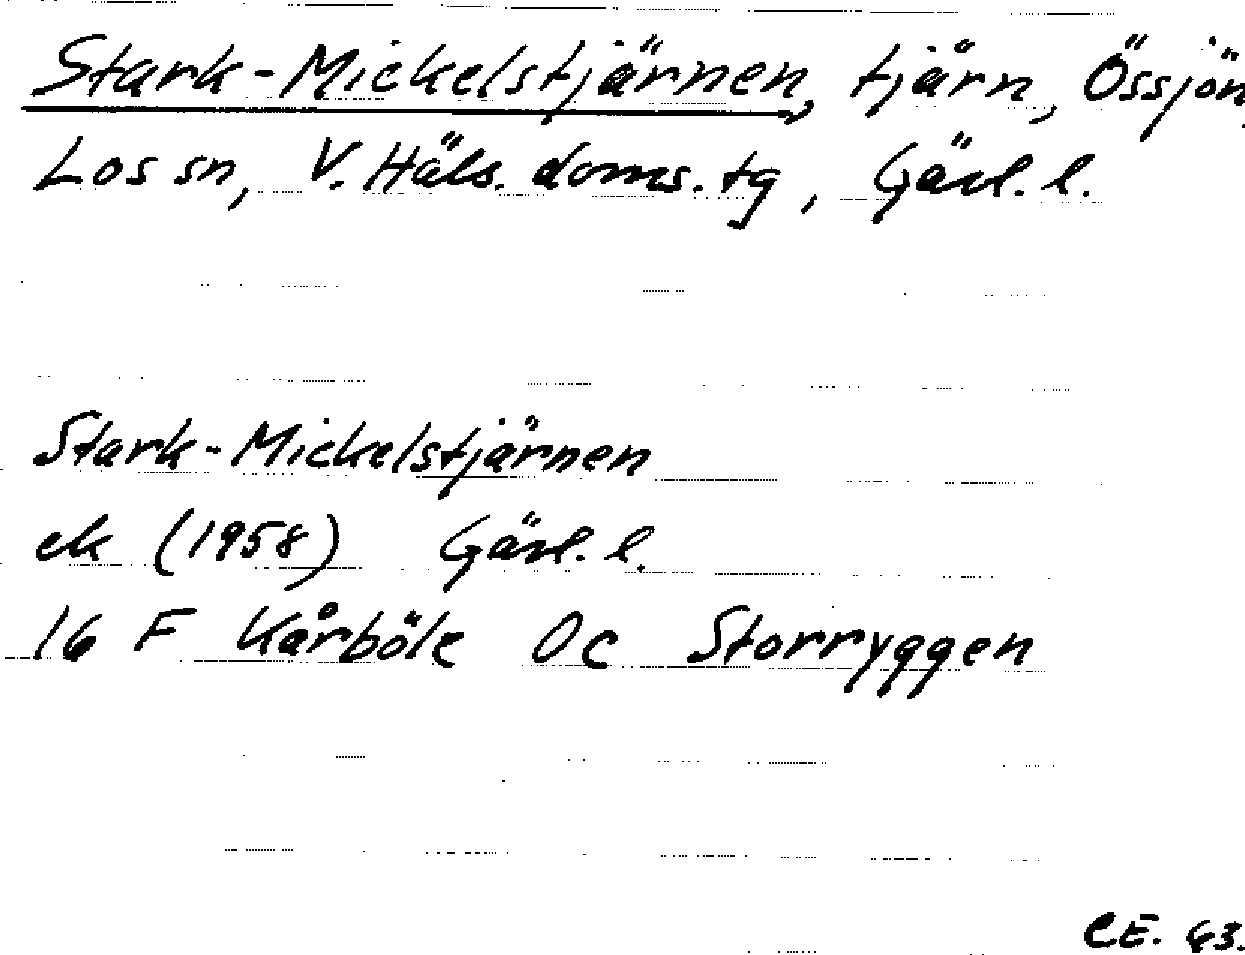 Stark-Mickelstjärnen, tjärn, Össjön,
Los sn, V. Häls. doms. tg, Gävl. l.
Stark-Mickelstjärnen
ek (1958) Gävl. l.
16 F Kårböle 0c Storryggen
CE. 63.